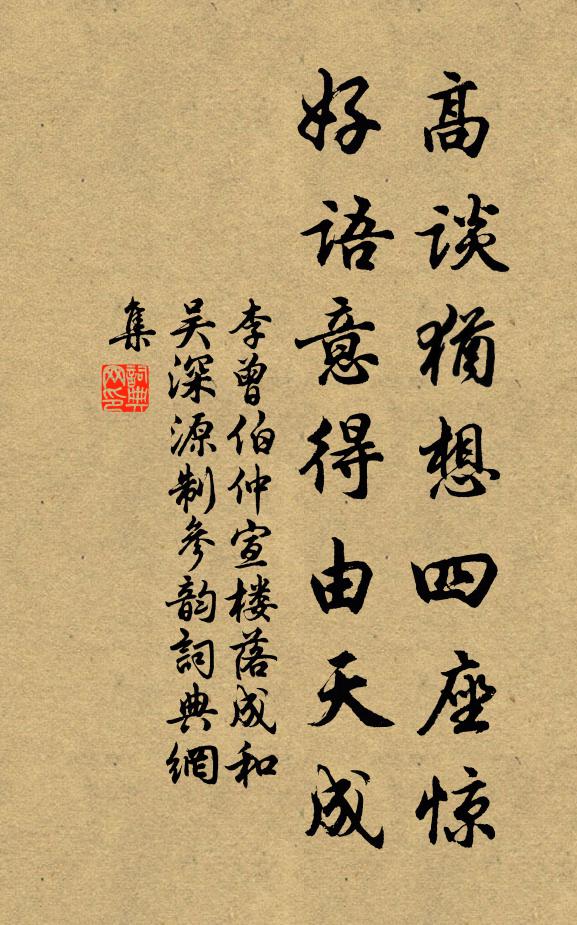 高谈猶想四座惊
好语意得由天成
李曾伯仲宣楼落成和
吴深源制参韵詞典網
集
詞典网印